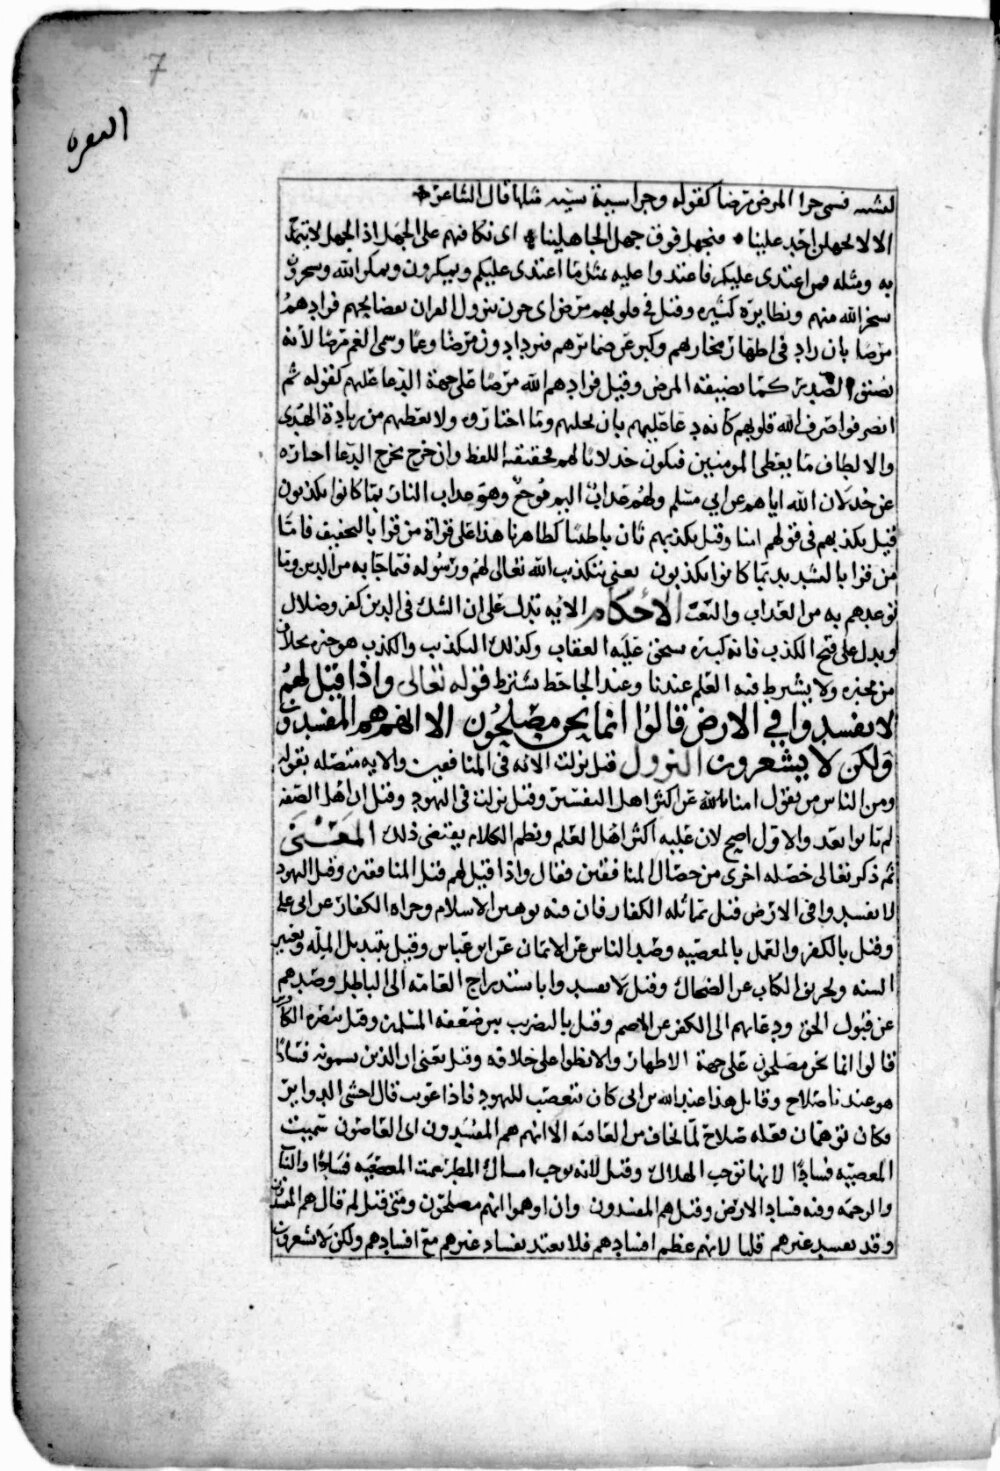 7
البقره
فسمى جزا المرض مرضا كقوله وجزا سيية سيية مثلها قال الشاعر
الا لا يجهلن احد علينا فنجهل فوق جهل الجاهلينا اى نكافهم على الجهل اذ الجهل لا يتمدح
به ومثله فمن اعتدى عليكم فاعتدوا عليه بمثل ما اعتدى عليكم ويمكرون ويمكر الله ويسخرون
سخر الله منهم ونظايره كثيره وقيل فى قلوبهم مرض اى حزن بنزول القران بفضايحهم فزادهم
مرضا بان زاد فى اظهار مخازيهم وكبر عن ضمايرهم فيزدادون مرضا وغما وسمى الغم مرضا لانه
يضيق الصدر كما يضيقه المرض وقيل فزادهم الله مرضا على جهة الدعا عليهم كقوله ثم
انصرفوا صرف الله قلوبهم كانه دعا عليهم بان يخليهم وما اختاروه ولا يعطيهم من زيادة الهدى
والالطاف ما يعطى المومنين فيكون خذلانا لهم فحقيقة اللفظ وان خرج مخرج الدعا اخباره
عن خذلان الله اياهم عن ابي مسلم ولهم عذاب اليم موجع وهو عذاب النار بما كانوا يكذبون
قيل بكذبهم فى قولهم امنا وقيل بكذبهم بان باطننا كظاهرنا هذا على قراة من قرا بالتخفيف فاما
من قرا بالتشديد بما كانوا يكذبون يعنى بتكذيب الله تعالى لهم ورسوله فيما جا به من الدين وما
توعدهم به من العذاب والبعث الاحكام الايه تدل على ان الشك فى الدين كفر وضلال
ويدل على قبح الكذب فانه كبيره يستحق عليه العقاب وكذلك التكذيب والكذب هو خبر بخلاف
مخبره ولا يشترط فيه العلم عندنا وعند الجاحظ يشترط قوله تعالى واذا قيل لهم
لا تفسدوا في الارض قالوا انما نحن مصلحون الا انهم هم المفسدون
ولكن لا يشعرون النزول قيل نزلت الايه فى المنافقين والايه متصله بقوله
ومن الناس من يقول امنا بالله عن اكثر اهل التفسير وقيل نزلت فى اليهود وقيل ان اهل الصفه
لم ياتوا بعد والاول اصح لان عليه اكثر اهل العلم ونظم الكلام يقتضى ذلك المعنى
ثم ذكر تعالى خصله اخرى من خصال المنافقين فقال واذا قيل لهم قيل المنافقين وقيل اليهود
لا تفسدوا فى الارض قيل بممايله الكفار فان فيه توهين الاسلام وجراه الكفار عن ابى على
وقيل بالكفر والعمل بالمعصيه وصد الناس عن الايمان عن ابن عباس وقيل بتبديل المله وتغيير
السنه وتحريف الكتاب عن الضحاك وقيل لا تفسدوا باستدراج العامه الى الباطل وصدهم
عن قبول الحق ودعايهم الى الكفر عن الاصم وقيل بالتضريب بين ضعفه المسلمين وقيل بنصره الكفار
قالوا انما نحن مصلحون على جهة الاظهار والابطوا على خلافه وقيل يعنى ان الذين يسمونه فسادا
هو عندنا صلاح وقايل هذا عبد الله بن ابى كان يتعصب لليهود فاذا عوتب قال اخشى الدواير
فكان توهمان فعله صلاح لما يخاف من العاقبه الا انهم هم المفسدون اى العاصون سميت
المعصيه فسادا لانها توجب الهلاك وقيل لانه يوجب امساك المطر سميت المعصيه فسادا
والرحمه وفيه فساد الارض وقيل هم المفسدون وان اوهموا انهم مصلحون ومتى قيل لم قال هم المفسدون
وقد يفسد غيرهم قلنا لانهم عظم افسادهم فلا يعتد بفساد غيرهم مع افسادهم ولكن لا يشعرون